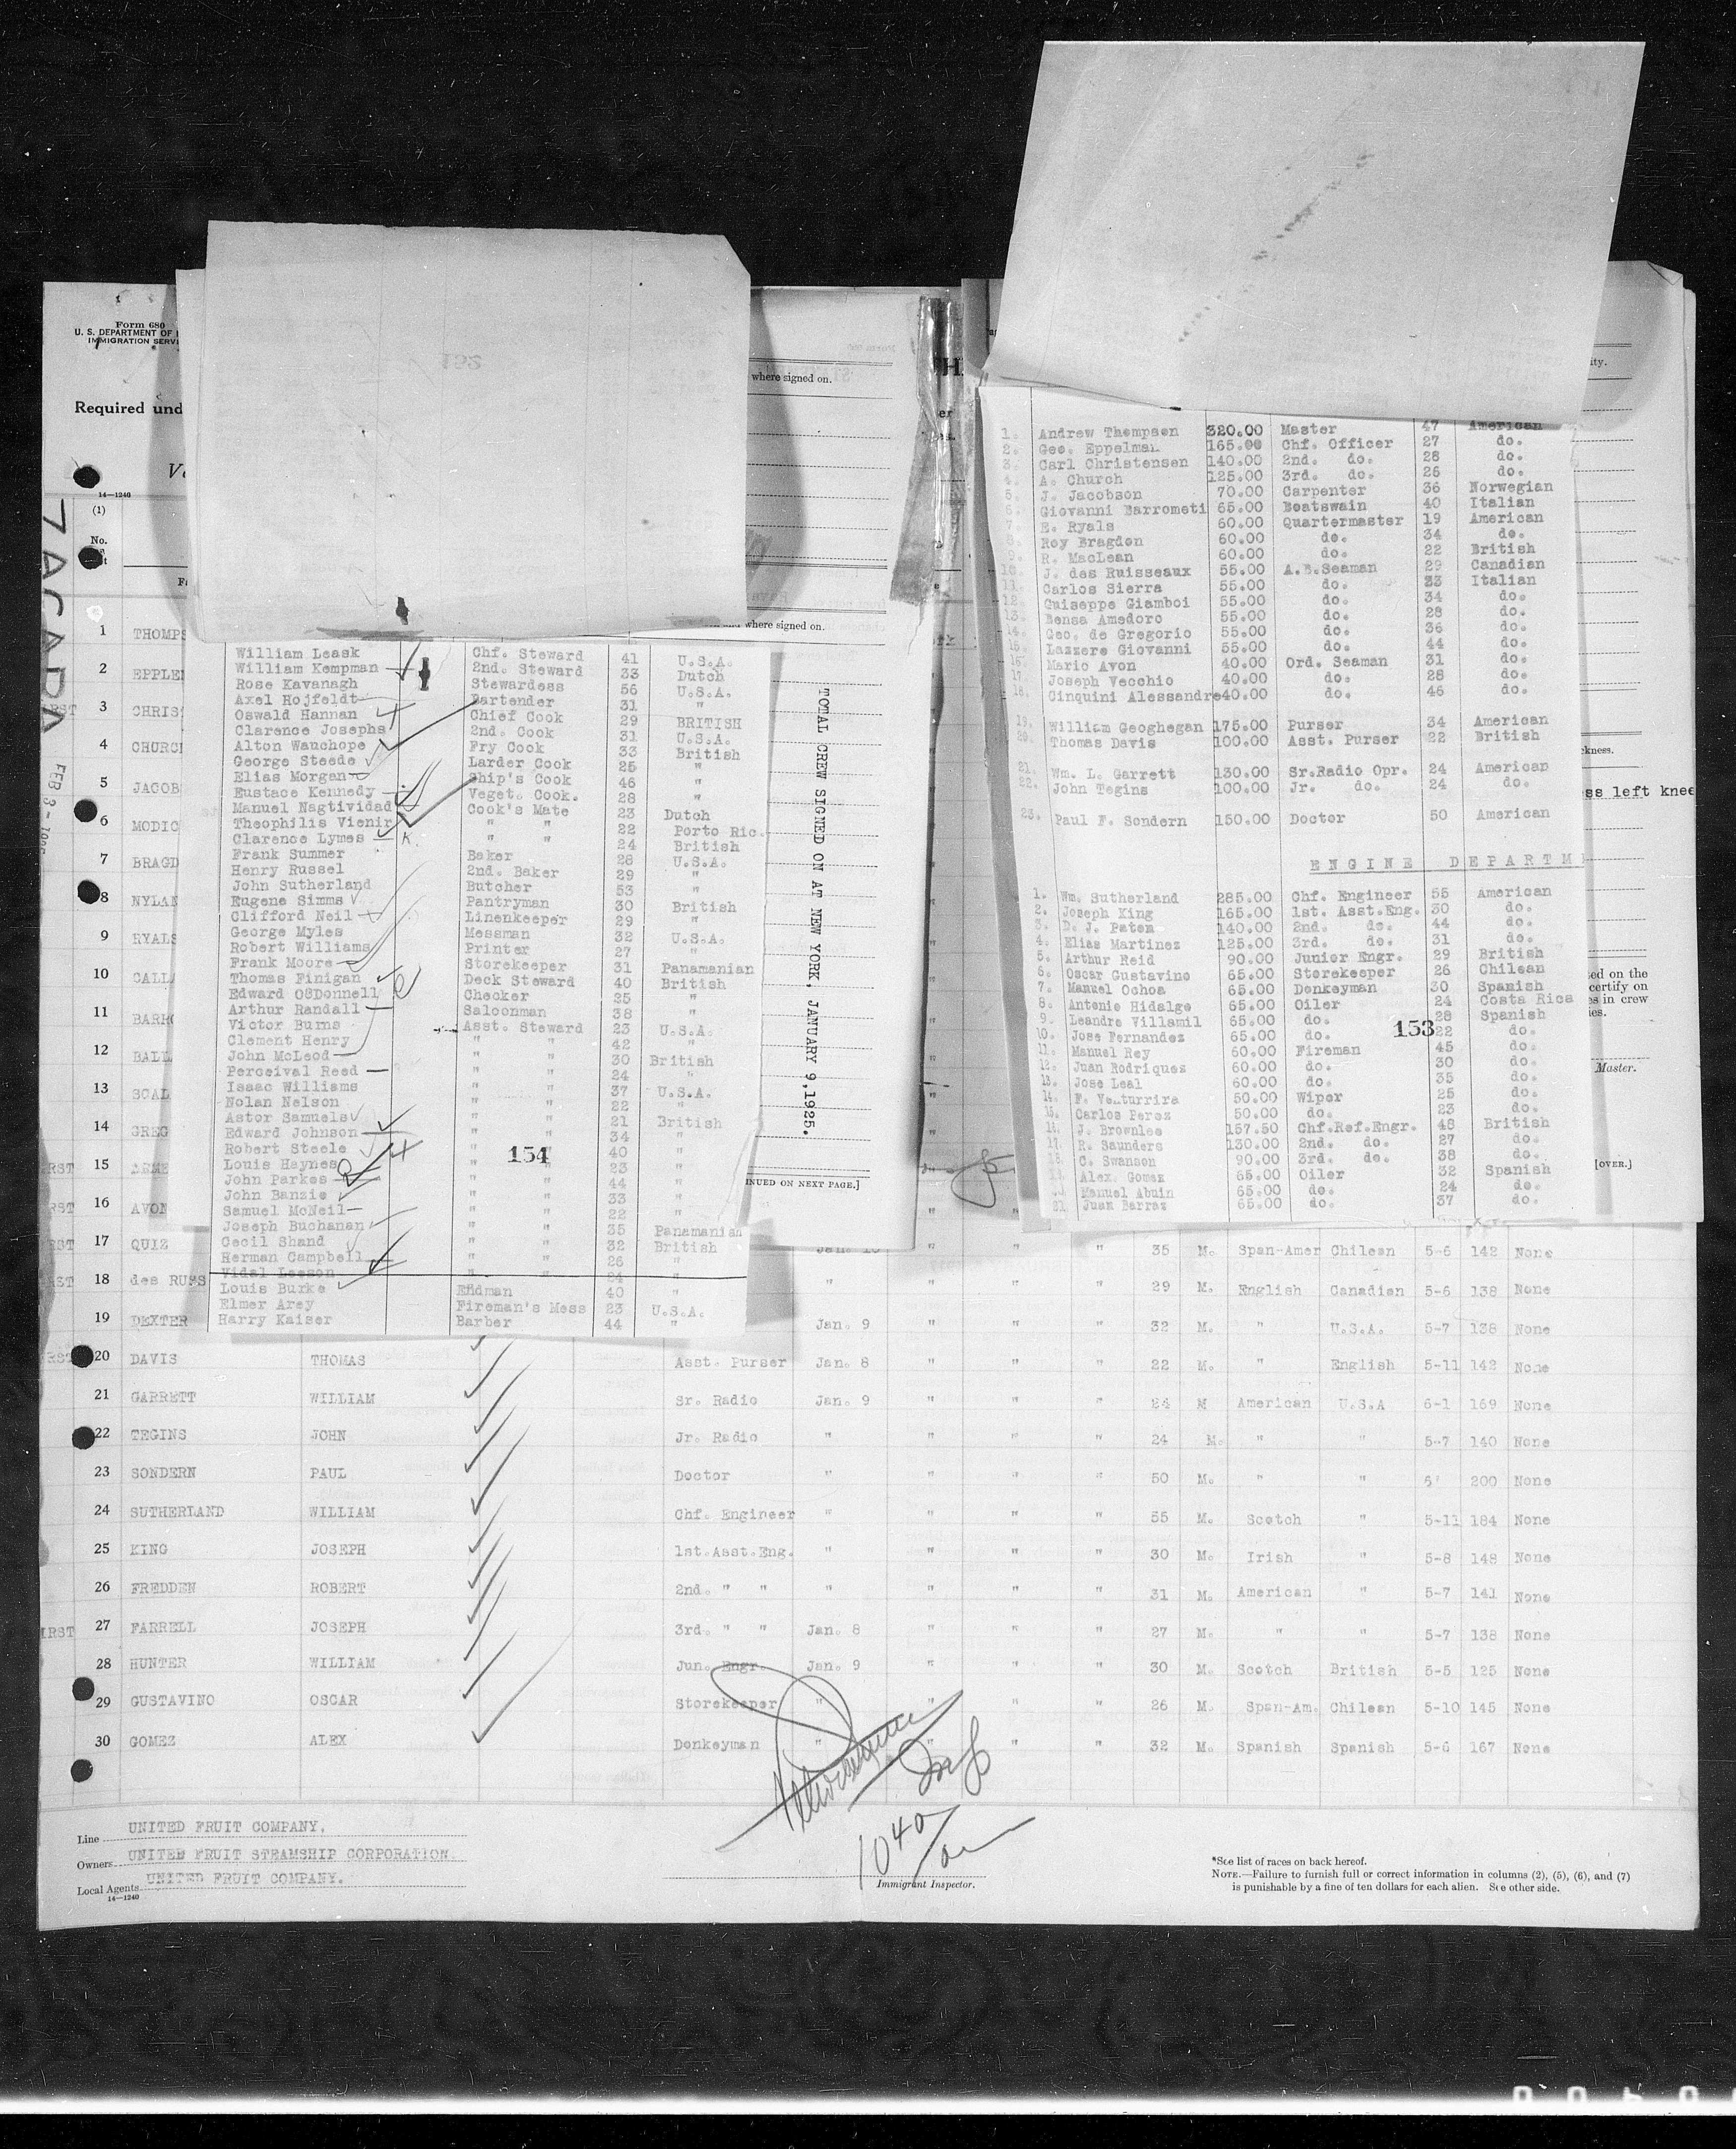 Form 680
U. S. DEPARTMENT OF
IMMIGRATION SERVI
Required und
14—1240
(1)
No.
ZACAPA FEB 3 -
where signed on.
where signed on.
1 THOMPS
2 EPPLE
3 CHRIS
4 CHURCH
5 JACOB
6 MODIC
7 BRAGD
8 NYLAN
9 RYALS
10 CALLA
11 BARRO
12 BALL
13 SCAL
14 GREG
15
16 AVON
17 QUIZ
18 des RUSS
19 DEXTER
152
William Leask Chf. Steward 41 U.S.A.
William Kempman 2nd. Steward 33 Dutch
Rose Kavanagh Stewardess 56 U.S.A.
Axel Rojfeldt Bartender 31 "
Oswald Hannan Chief Cook 29 BRITISH
Clarence Josephs 2nd. Cook 31 U.S.A.
Alton Wauchope Fry Cook 33 British
George Steede Larder Cook 25 "
Elias Morgan Ship's Cook 46 "
Eustace Kennedy Veget. Cook. 28 "
Manuel Nagtividad Cook's Mate 23 Dutch
Theophilis Vienir " " 22 Porto Ric.
Clarence Lymes " " 24 British
Frank Summer Baker 28 U.S.A.
Henry Russel 2nd. Baker 29 "
John Sutherland Butcher 53 "
Eugene Simms Pantryman 30 British
Clifford Neil Linenkeeper 29 "
George Myles Messman 32 U.S.A.
Robert Williams Printer 27 "
Frank Moore Storekeeper 31 Panamanian
Thomas Finigan Deck Steward 40 British
Edward O8Donnell Checker 25 "
Arthur Randall Saloonman 38 "
Victor Burns Asst. Steward 23 U.S.A.
Clement Henry " " 42 "
John McLeod " " 30 British
Perceival Reed " " 24 "
Isaac Williams " " 37 U.S.A.
Nolan Nelson " " 22 "
Astor Samuels " " 21 British
Edward Johnson " " 34 "
Robert Steele " " 40 "
Louis Haynes " " 23 "
John Parkes " " 44 "
John Banzie " " 33 "
Samuel McNeil " " 22 "
Joseph Buchanan " " 35 Panamanian
Cecil Shand " " 32 British
Herman Campbell " " 26 "
Vidal Leeson " " 24 "
Louis Burke Endman 40 "
Elmer Arey Fireman's Mess 23 U.S.A.
Harry Kaiser Barber 44 "
154
TOTAL CREW SIGNED ON AT NEW YORK, JANUARY 9,1925.
INUED ON NEXT PAGE.]
1. Andrew Thompson 320.00 Master 47 American
2. Geo. Eppelman 165.00 Chf. Officer 27 do.
3. Carl Christensen 140.00 2nd. do. 28 do.
4. A. Church 125.00 3rd. do. 26 do.
5. J. Jacobson 70.00 Carpenter 36 Norwegian
6. Giovanni Barrometi 65.00 Boatswain 40 Italian
7. E. Ryals 60.00 Quartermaster 19 American
8. Roy Bragdon 60.00 do. 34 do.
9. R. MacLean 60.00 do. 22 British
10. J. des Ruisseaux 55.00 A.B.Seaman 29 Canadian
11. Carlos Sierra 55.00 do. 33 Italian
12. Guiseppe Giamboi 55.00 do. 34 do.
13. Bensa Amedoro 55.00 do. 28 do.
14. Geo. de Gregorio 55.00 do. 36 do.
15. Lazzere Giovanni 55.00 do. 44 do.
16. Mario Avon 40.00 Ord. Seaman 31 do.
17. Joseph Vecchio 40.00 do. 28 do.
18. Cinquini Alessandre 40.00 do. 46 do.
19. William Geoghegan 175.00 Purser 34 American
20. Thomas Davis 100.00 Asst. Purser 22 British
21. Wm. L. Garrett 130.00 Sr.Radio Opr. 24 American
22. John Tegins 100.00 Jr. do. 24 do.
23. Paul F. Sondern 150.00 Doctor 50 American
ENGINE DEPARTM
1. Wm. Sutherland 285.00 Chf. Engineer 55 American
2. Joseph King 165.00 1st. Asst.Eng. 30 do.
3. D. J. Paten 140.00 2nd. do. 44 do.
4. Elias Martinez 125.00 3rd. do. 31 do.
5. Arthur Reid 90.00 Junior Engr. 29 British
6. Oscar Gustavino 65.00 Storekeeper 26 Chilean
7. Manuel Ochoa 65.00 Donkeyman 30 Spanish
8. Antonie Hidalge 65.00 Oiler 24 Costa Rica
9. Leandro Villamil 65.00 do. 28 Spanish
10. Jose Fernandez 65.00 do. 22 do.
11. Manuel Rey 60.00 Fireman 45 do.
12. Juan Rodriques 60.00 do. 30 do.
13. Jose Leal 60.00 do. 35 do.
14. F. Venturrira 50.00 Wiper 25 do.
15. Carlos Perez 50.00 do. 23 do.
16. J. Brownlee 157.50 Chf.Ref.Engr. 48 British
17. R. Saunders 130.00 2nd. do. 27 do.
18. C. Swanson 90.00 3rd. do. 38 do.
19. Alex. Gomez 65.00 Oiler 32 Spanish
20. Manuel Abuin 65.00 do. 24 do.
21. Juan Barraz 65.00 do. 37 do.
153
ity.
ckness.
ss left knee
ed on the
certify on
es in crew
ies.
Master.
[OVER.]
" " " 35 M. Span-Amer Chilean 5-6 142 None
" " " " 29 M. English Canadian 5-6 138 None
Jan. 9 " " " 32 M. " U.S.A. 5-7 138 None
20 DAVIS THOMAS Asst. Purser Jan. 8 " " " 22 M. " English 5-11 142 None
21 GARRETT WILLIAM Sr. Radio Jan. 9 " " " 24 M American U.S.A 6-1 169 None
22 TEGINS JOHN Jr. Radio " " " " 24 M. " " 5-7 140 None
23 SONDERN PAUL Doctor " " " " 50 M. " " 6' 200 None
24 SUTHERLAND WILLIAM Chf. Engineer " " " " 55 M. Scotch " 5-11 184 None
25 KING JOSEPH 1st.Asst.Eng. " " " " 30 M. Irish " 5-8 148 None
26 FREDDEN ROBERT 2nd. " " " " " " 31 M. American " 5-7 141 None
27 FARRELL JOSEPH 3rd. " " Jan. 8 " " " 27 M. " " 5-7 138 None
28 HUNTER WILLIAM Jun. Engr. Jan. 9 " " " 30 M. Scotch British 5-5 125 None
29 GUSTAVINO OSCAR Storekeeper " " " " 26 M. Span-Am. Chilean 5-10 145 None
30 GOMEZ ALEX Donkeyman " " " " 32 M. Spanish Spanish 5-6 167 None
Line UNITED FRUIT COMPANY.
Owners UNITED FRUIT STEAMSHIP CORPORATION.
Local Agents UNITED FRUIT COMPANY.
14—1240
1040
Immigrant Inspector.
*See list of races on back hereof.
NOTE.—Failure to furnish full or correct information in columns (2), (5), (6), and (7)
is punishable by a fine of ten dollars for each alien. See other side.